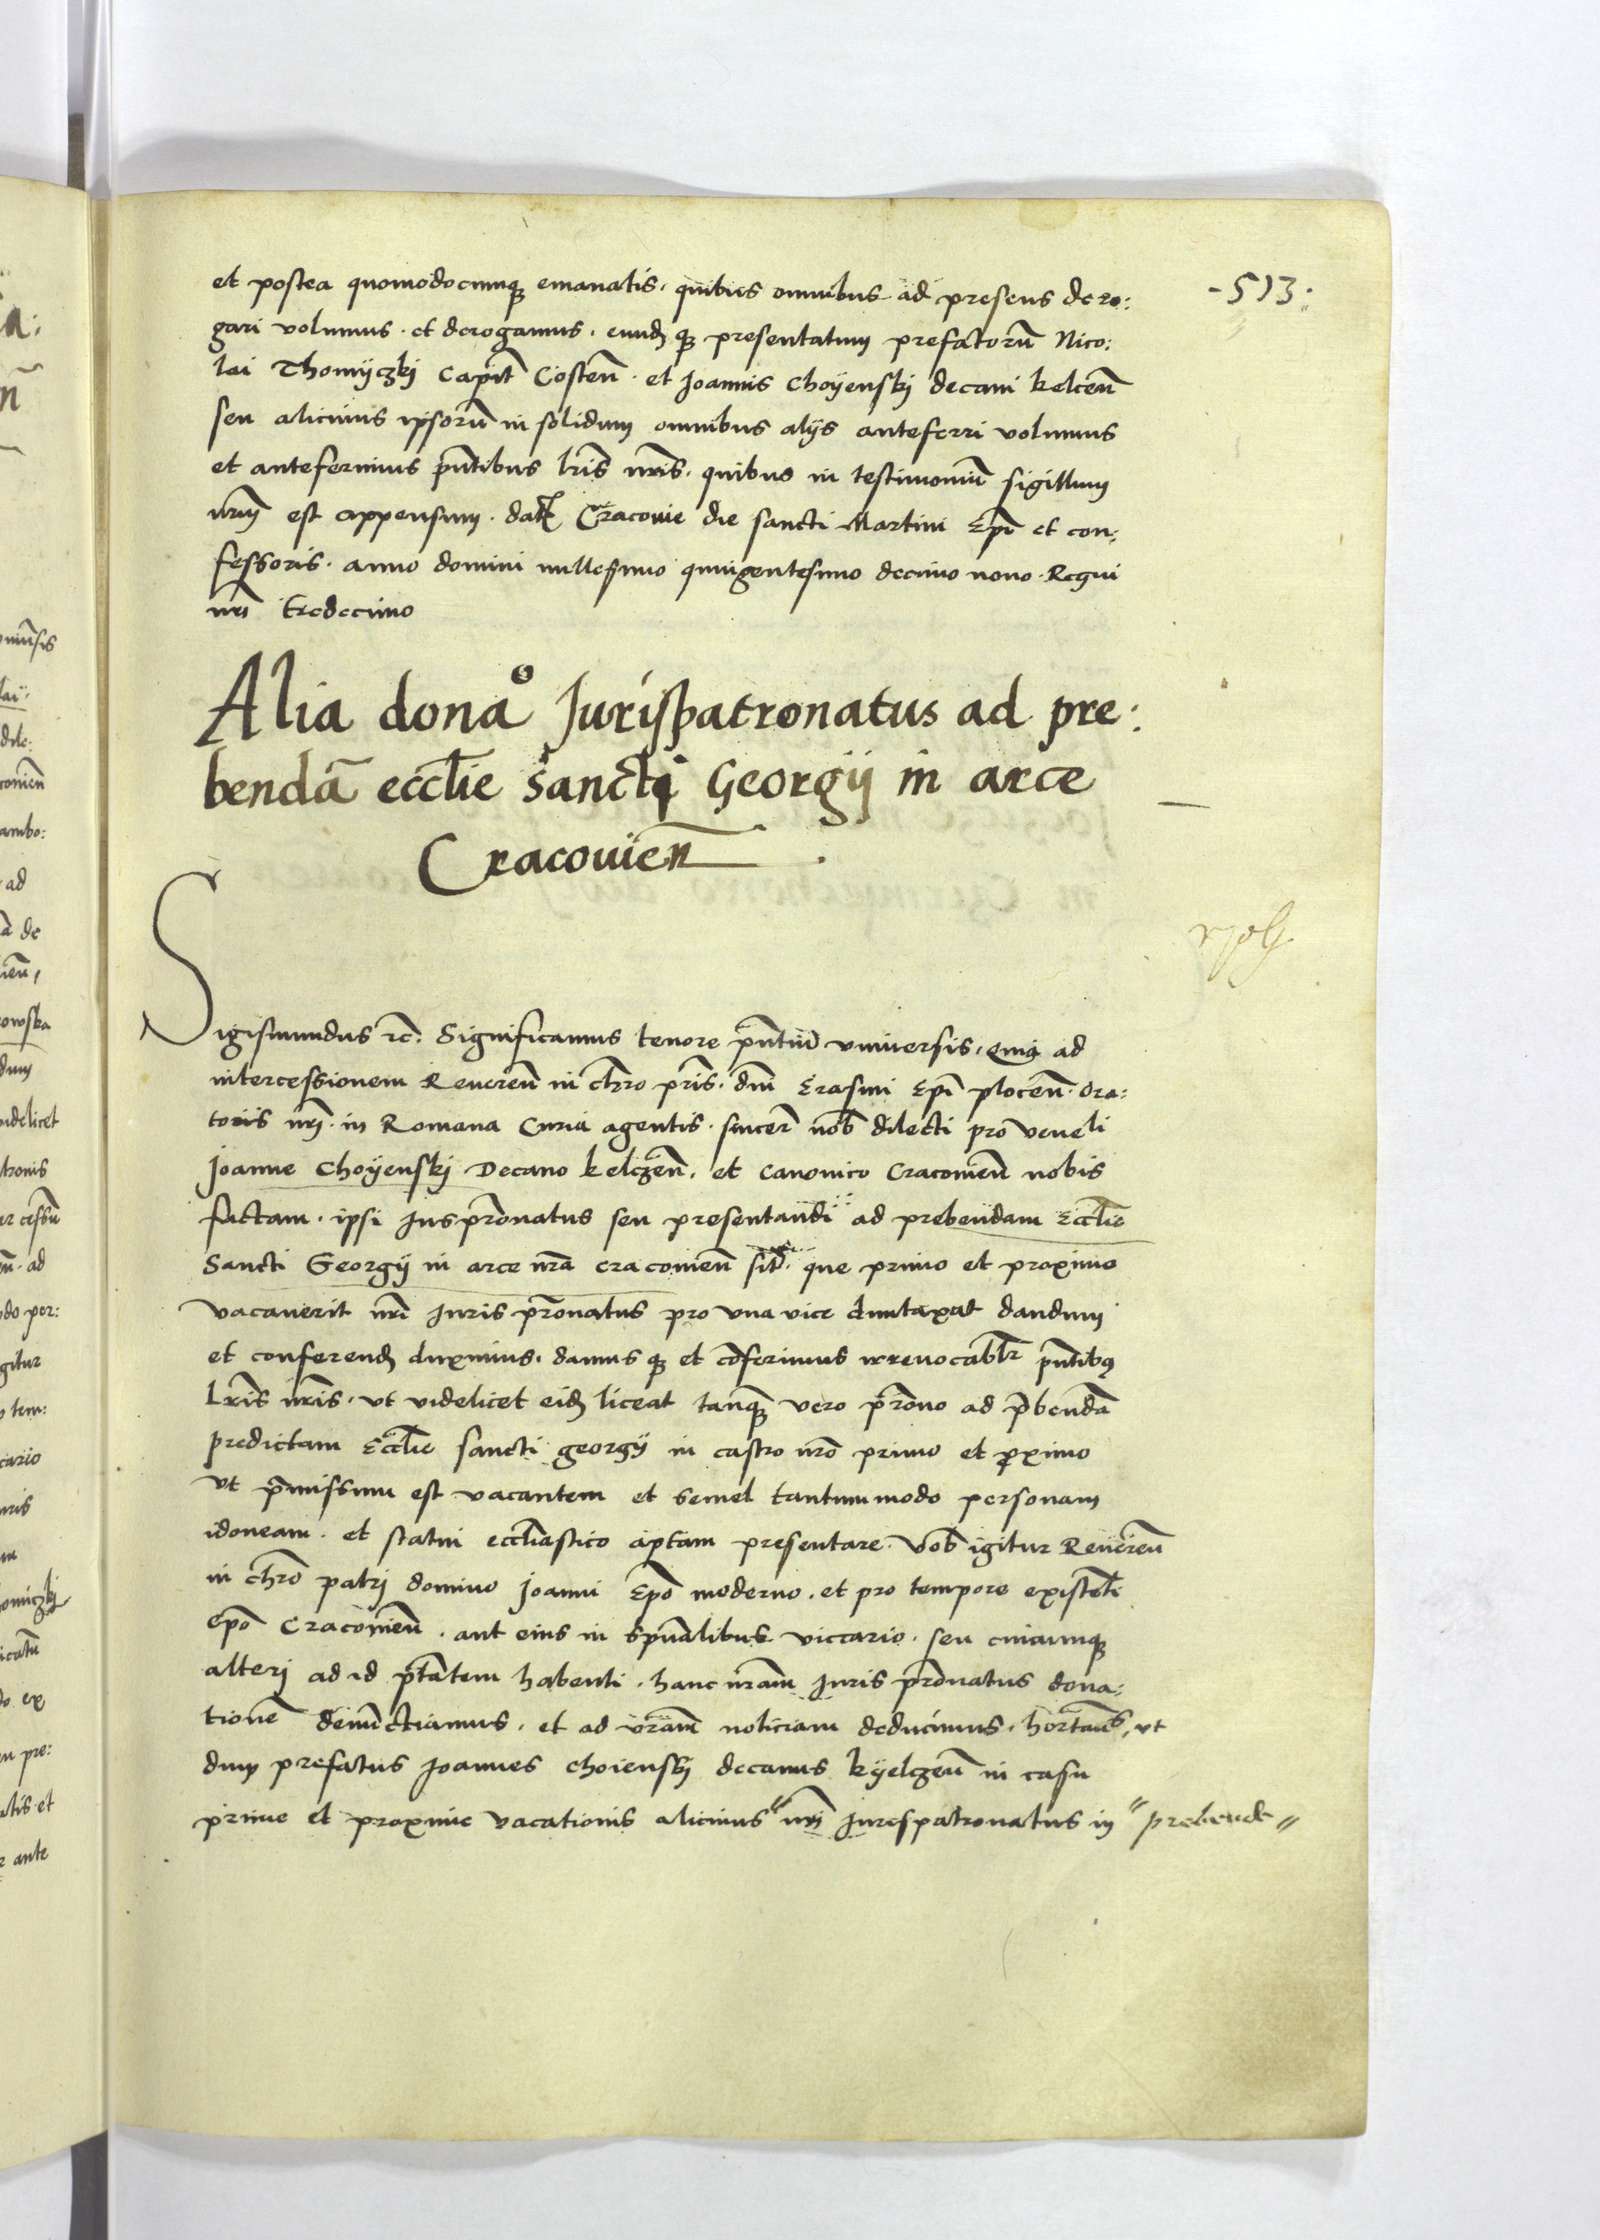 - 513 ·
et postea quomodocumq emanatis, quibus omnibus ad presens dero:
gari volumus · et derogamus, eundq presentatum prefatorũ Nico:
lai Thomyczkj Capit̃ Costeñ · et Joannis Choyenskj decani kelceñ
seu alicuius ipsorũ in solidum omnibus alijs anteferri volumus
et anteferimus p̃ntibus lr̃is nr̃is, quibus in testimoniũ sigillum
nr̃m est appensum · dat Cracouie die sancti Martini Ep̃i et con,
fessoris · anno domini millesimo quingentesimo decimo nono · Regni
nr̃i tredecimo
Alia dona° Jurispatronatus ad pre:
bendã eccl̃ie sancti Georgij in arce
Cracouieñ ·
Sigismundus rc̃: Significamus tenore p̃ntiũ vniuersis, quia ad
intercessionem Reuereñ in chr̃o pr̃is · dñi Erasmi Ep̃i ploceñ · ora:
toris nr̃j · in Romana Curia agentis · sincer̃ nob̃ dilecti pro veneli
Joanne Choyenskj · Decano kelczeñ, et Canonico Cracouieñ nobis
factam · ipsi Jusp̃ronatus seu presentandi ad prebendam Eccl̃ie
Sancti Georgij in arce nr̃a cracouieñ sit̃ · que primo et proximo
vacauerit nr̃i Juris p̃ronatus pro vna vice duntaxat dandum
et conferend duximus, damusq et cõferimus irreuocablr̃ p̃ntibq
Lr̃is nr̃is, vt videlicet eid liceat tanq vero p̃rono ad p̃bendã
predictam Eccl̃ie sancti georgij in castro nr̃o primo et proximo
vt p̃missum est vacantem et semel tantummodo personam
idoneam · et statui eccl̃iastico aptam presentare · Vob̃ igitur Reuereñ
in chr̃o patrj domino Joanni Ep̃o moderno, et pro tempore existẽti
ep̃o Cracouieñ · aut eius in sp̃ualibus viccario, seu cuicumq
alterj ad id p̃tatem habenti, hanc nr̃am Juris p̃ronatus dona:
tionẽ denũctiamus, et ad vr̃am noticiam deducimus, hortam̃s, vt
dum prefatus Joannes choienskj decanus kyelczeñ in casu
prime et proxime vacationis alicuius " nr̃j Jurespatronatus in " prebende "